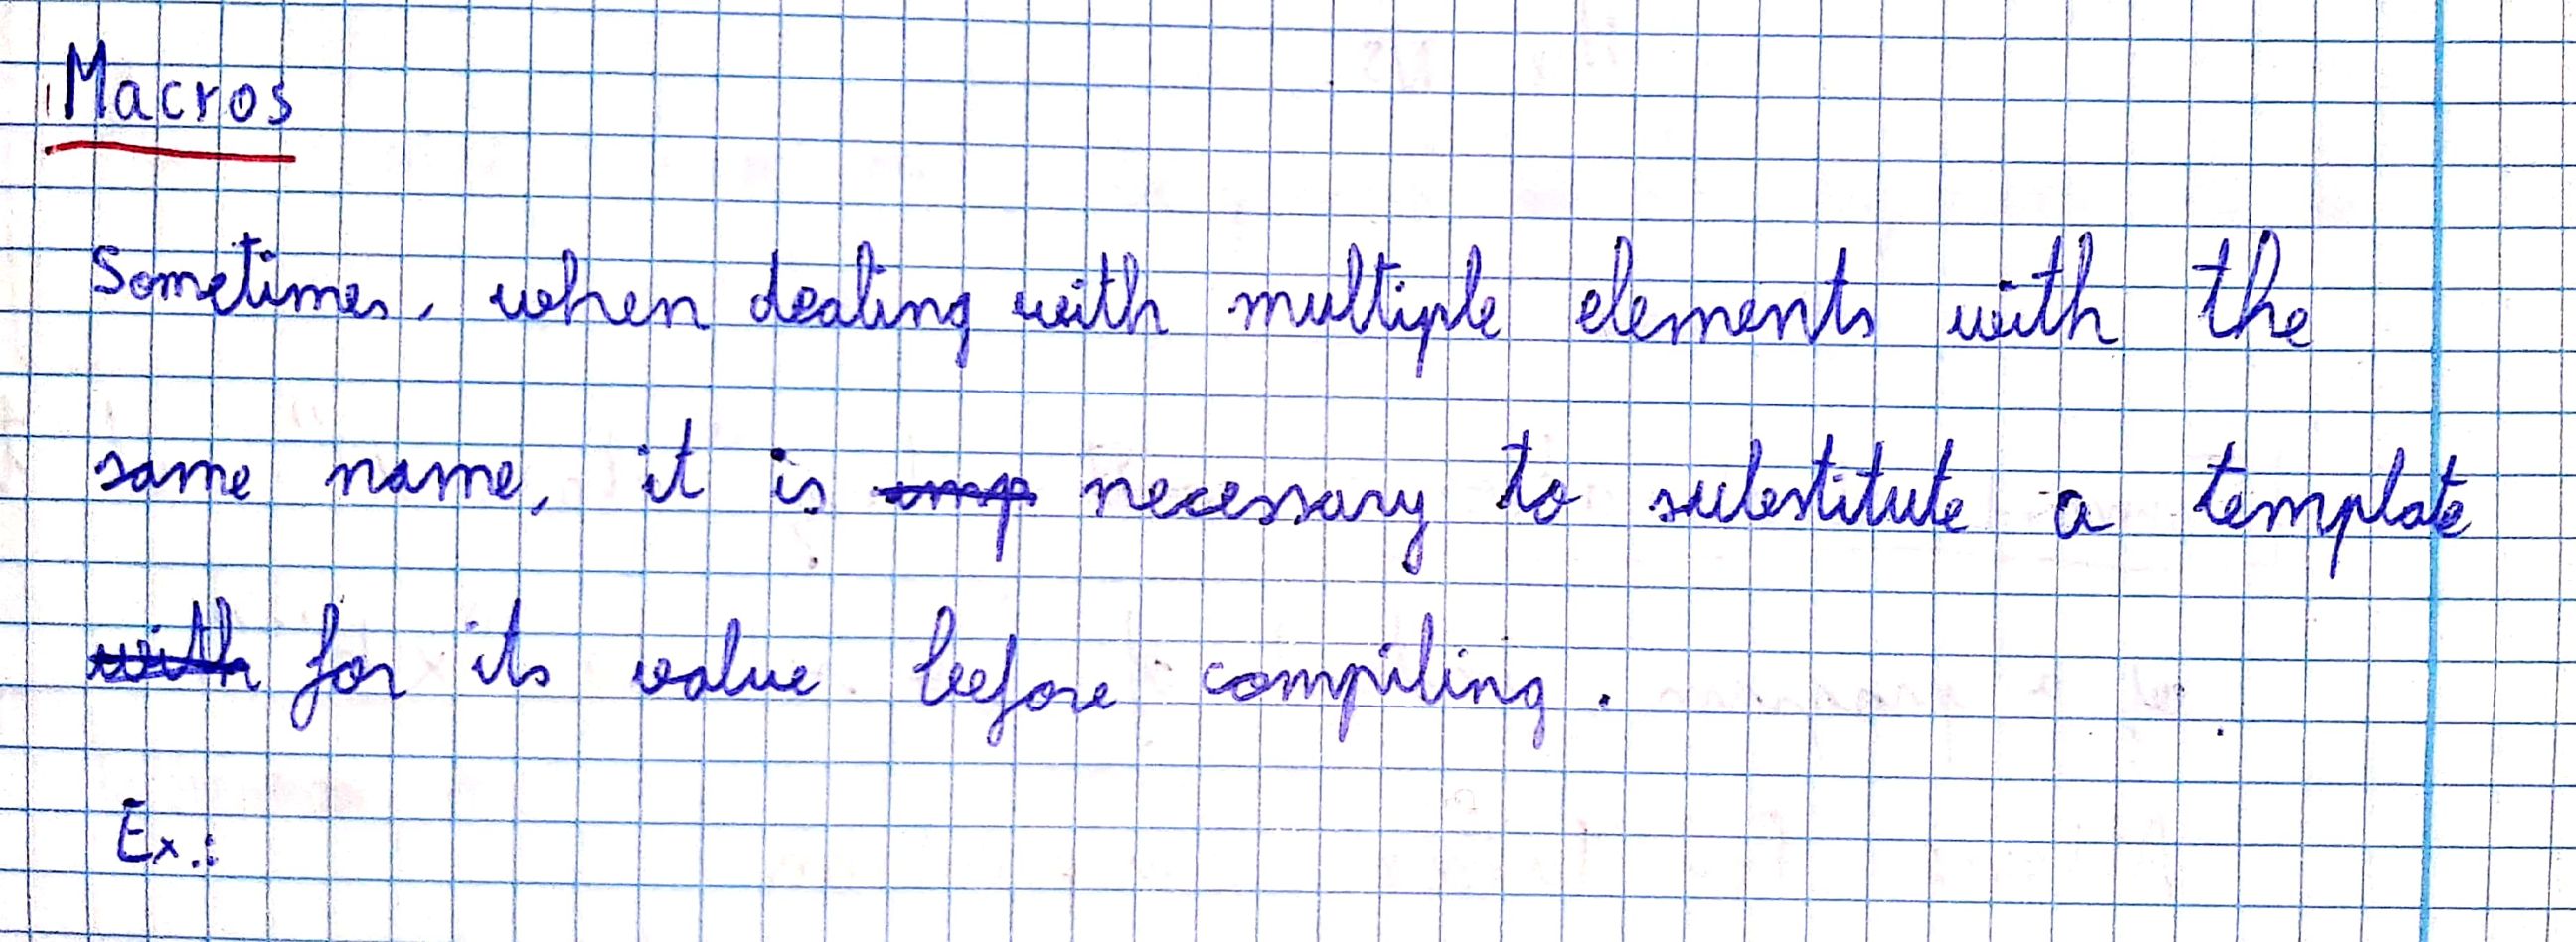 Macros
Sometimes, when dealing with multiple elements with the
same name, it is necessary to substitute a template
for its value before compiling.
Ex.: